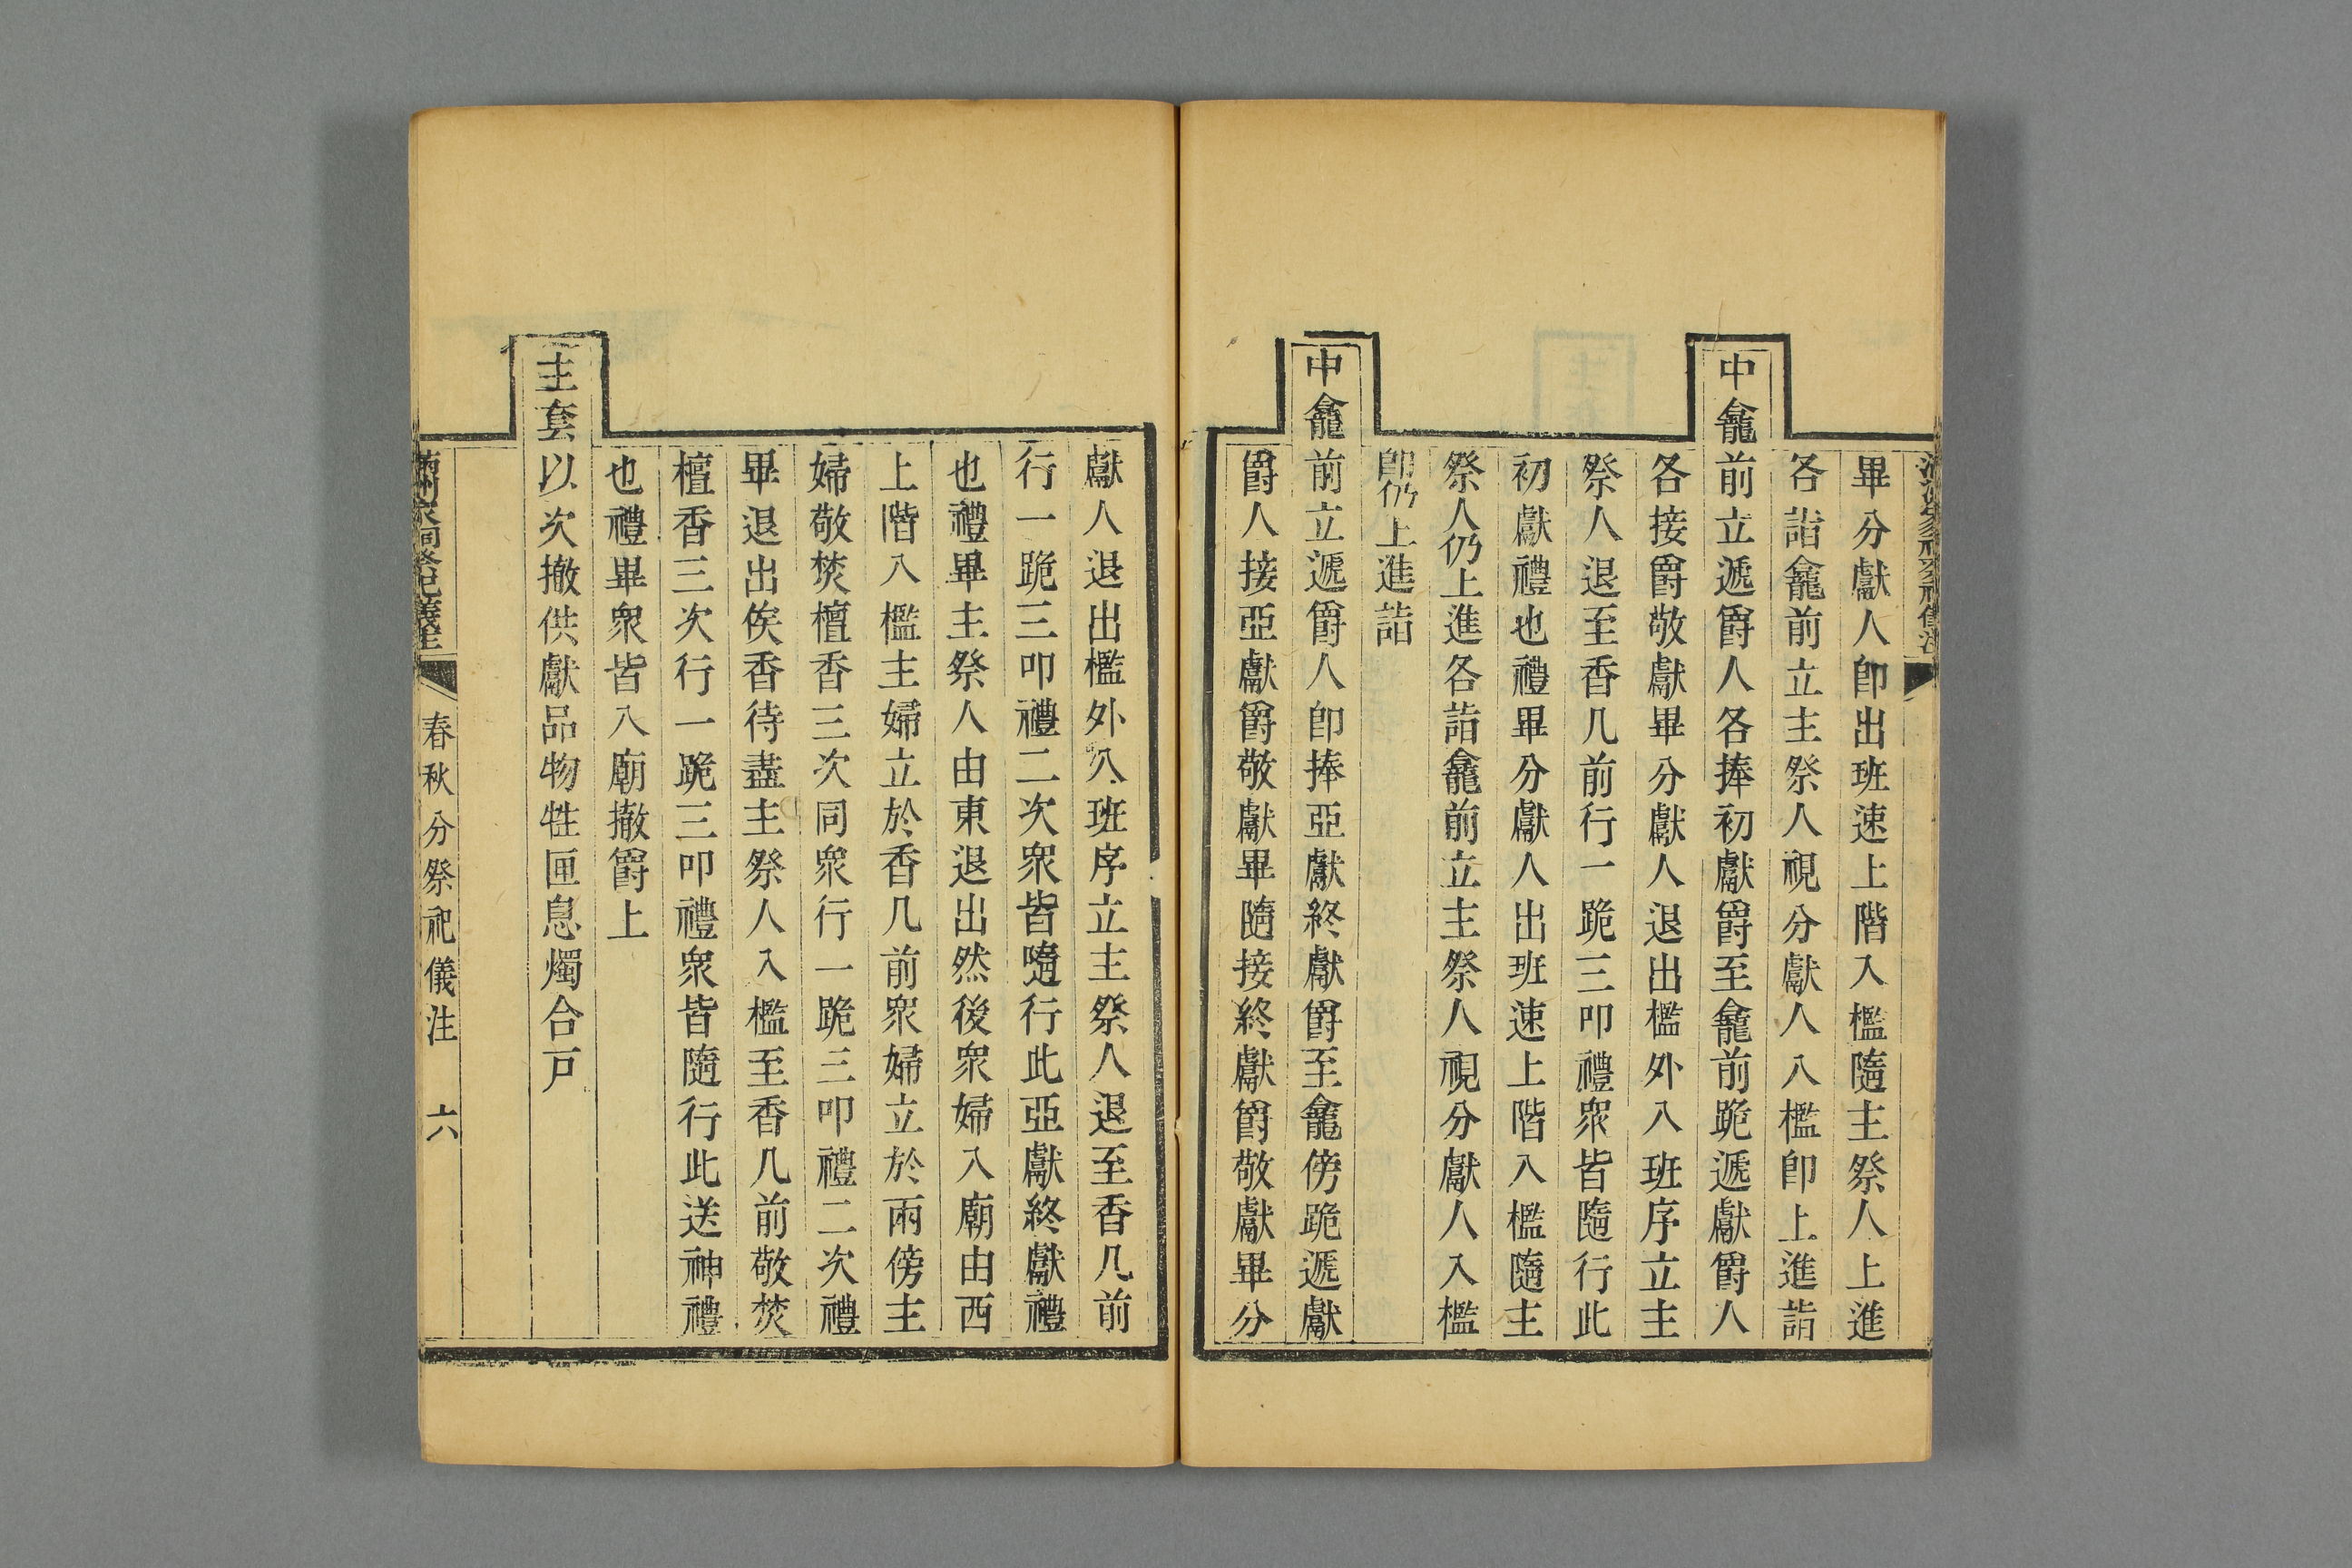 畢分獻人卽出班速上階入檻隨主祭人上進
各詣龕前立主祭人視分獻人入檻卽上進詣
中龕前立遞爵人各捧初獻爵至龕前跪遞獻爵人
各接爵敬獻畢分獻人退出檻外入班序立主
祭人退至香几前行一跪三叩禮衆皆隨行此
初獻禮也禮畢分獻人出班速上階入檻隨主
祭人仍上進各詣龕前立主祭人視分獻人入檻
卽仍上進詣
中龕前立遞爵人卽捧亞獻終獻爵至龕傍跪遞獻
爵人接亞獻爵敬獻畢隨接終獻爵敬獻畢分
獻人退出檻外入班序立主祭人退至香几前
行一跪三叩禮二次衆皆隨行此亞獻終獻禮
也禮畢主祭人由東退出然後衆婦入廟由西
上階入檻主婦立於香几前衆婦立於兩傍主
婦敬焚檀香三次同衆行一跪三叩禮二次禮
畢退出俟香待盡主祭人入檻至香几前敬焚
檀香三次行一跪三叩禮衆皆隨行此送神禮
也禮畢衆皆入廟撤爵上
主套以次撤供獻品物牲匣息燭合戸
春秋分祭祀儀注 六